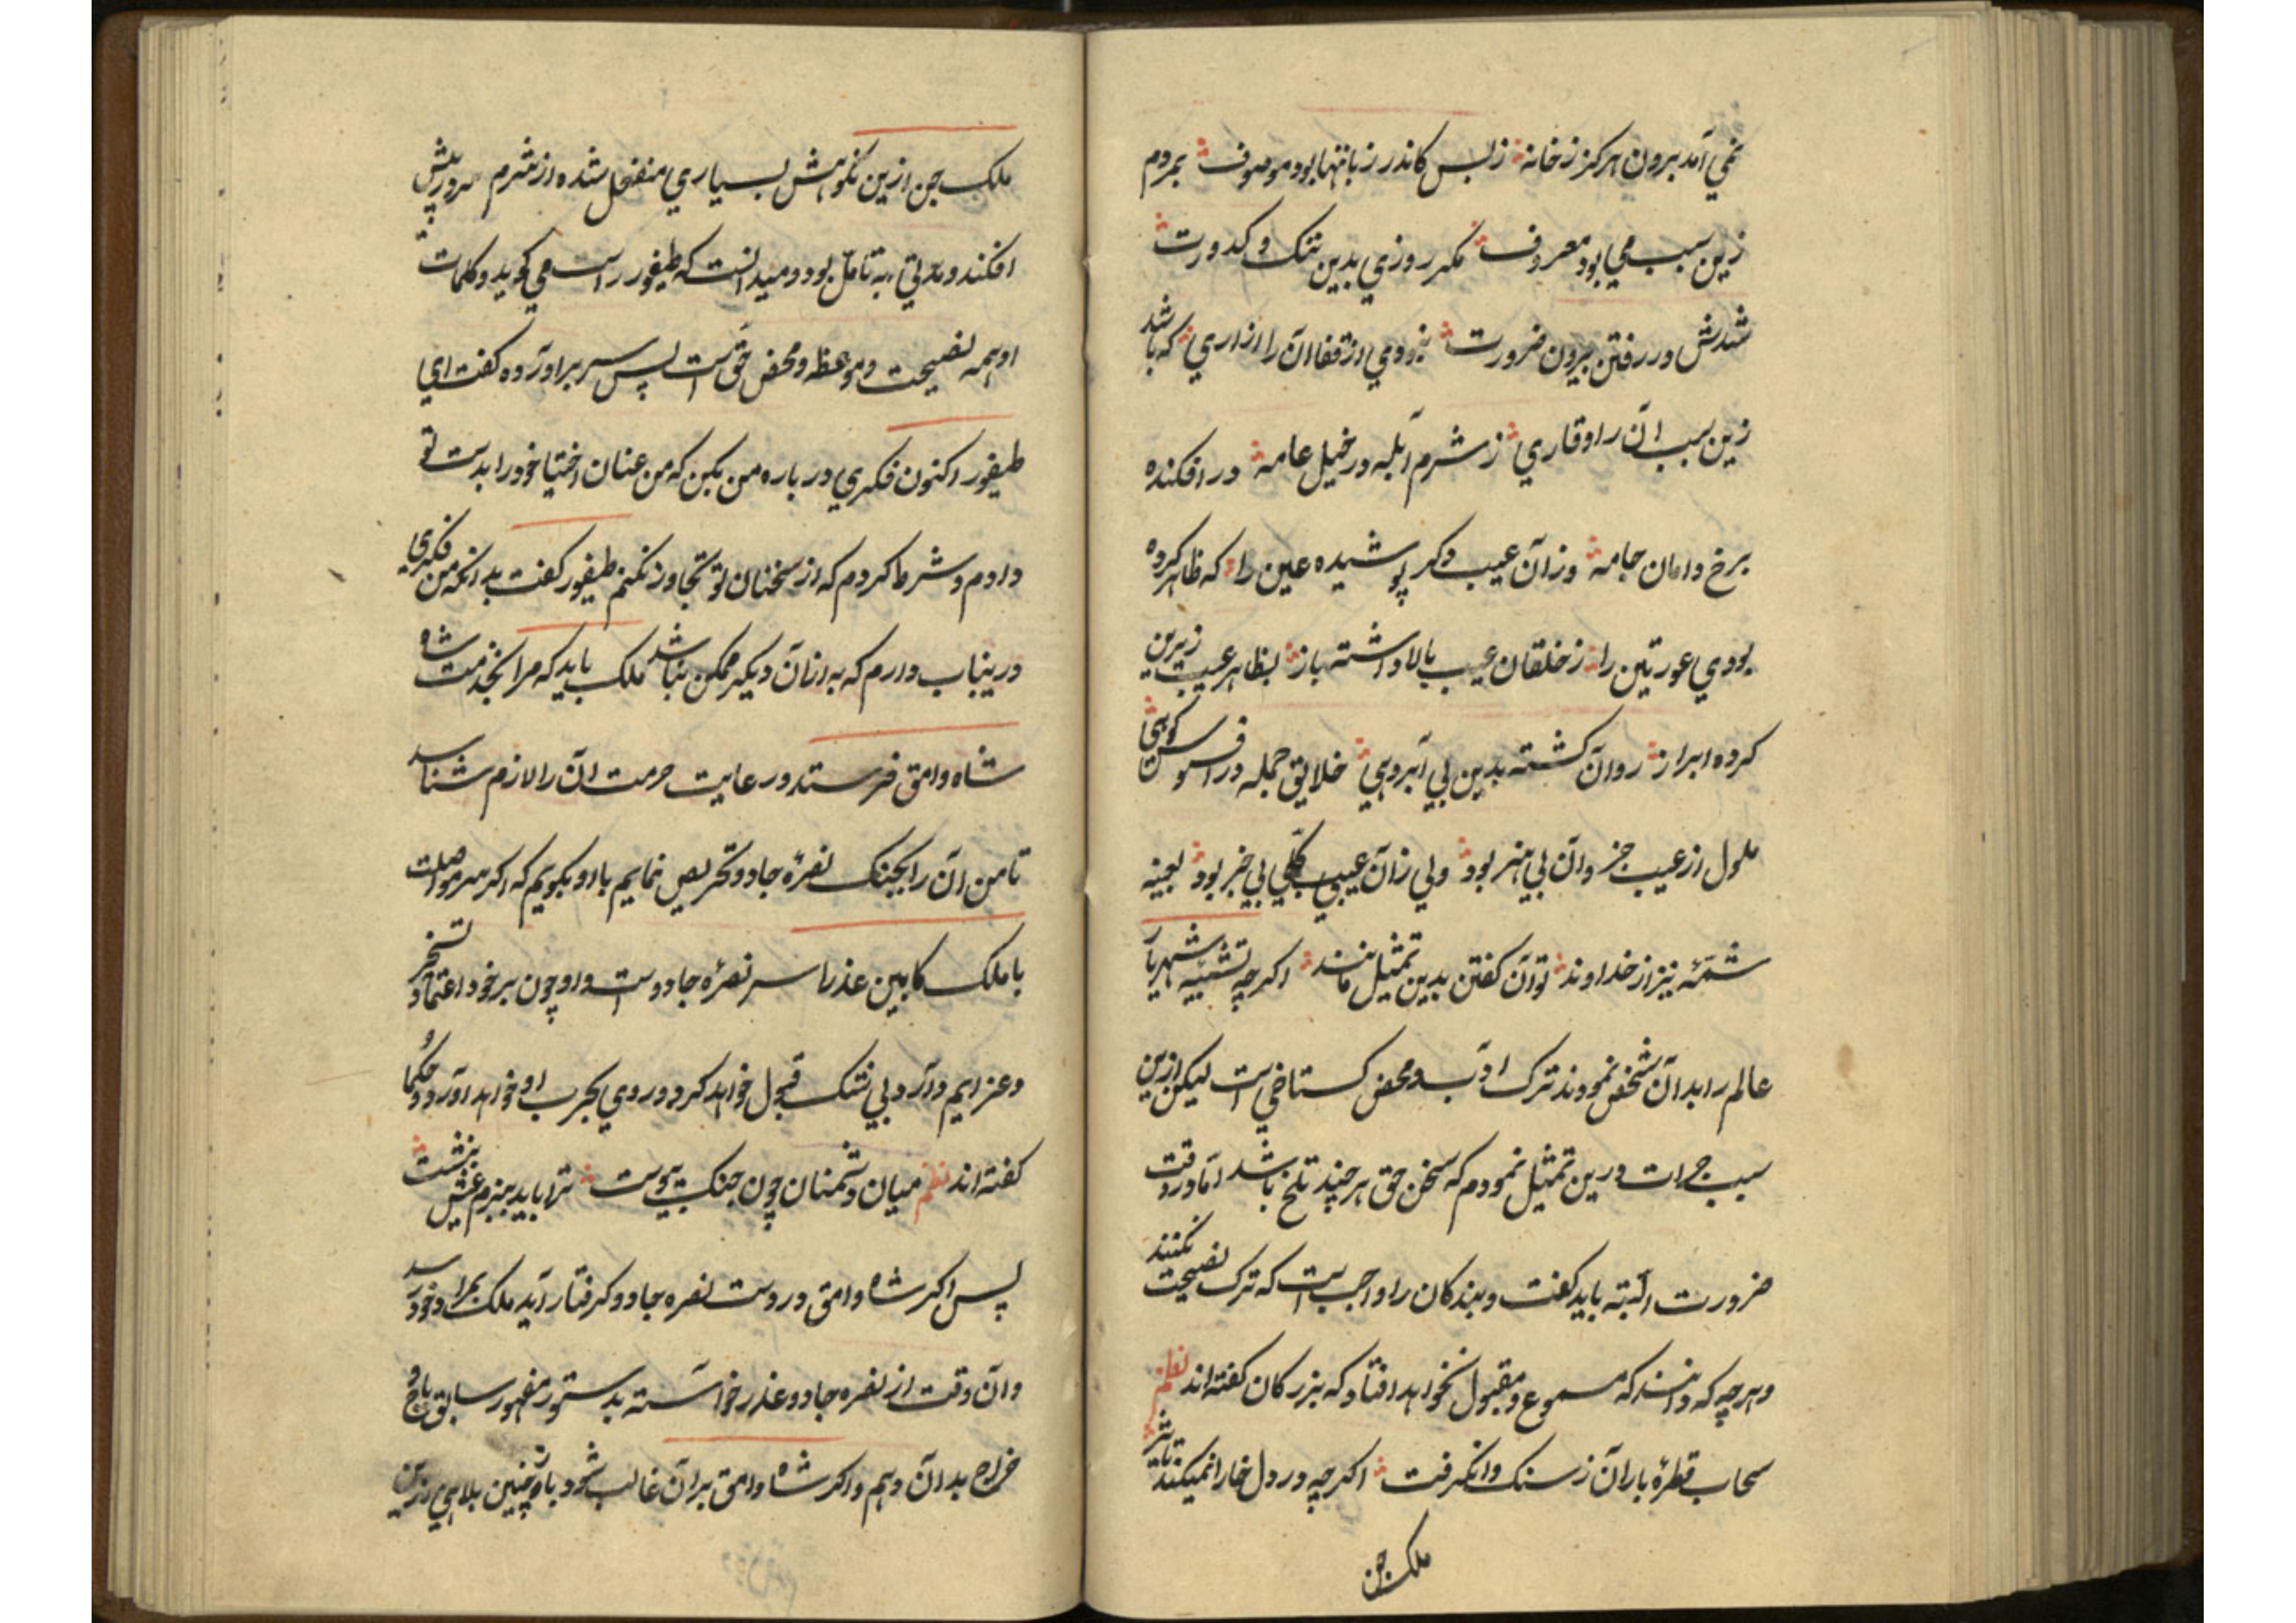 نمي آمد برون هرکز ز خانه ز بس کاندر زبانها بود موصوف بمردم
زین سبب مي بود معروف مکر روزي بدین ننک و کدورت
شدش در رفتن بیرون ضرورت زدودي از قفا آن را ازاري که باشد
زین سبب آن را وقاري ز شرم آبله در خیل عامه در افکنده
برخ دامان جامه وز آن عیب دکر پوشیده عین را که ظاهر کرده
بودي عورتین را ز خلقان عیب بالا داشته باز بظاهر عیب زیرین
کرده ابراز روان کشته بدین بي آبرویي خلایق جمله در افسوس کویي
ملول از عیب جزو آن بي هنر بود ولي زان عیب کلّي بي خبر بود بعینه
شمّهٔ نیز از خداوند توان کفتن بدین تمثیل مانند اکرچه تشبیه شهریار
عالم را بدان شخص نمودند ترک ادب و محض کستاخي است لیکن ازین
سبب جرات درین تمثیل نمودم که سخن حق هر چند تلخ باشد اما در وقت
ضرورت البته باید کفت و بندکان را واجب است که ترک نصیحت نکنند
و هرچه که دانند که مسموع و مقبول نخواهد افتاد که بزرکان کفته اند نظم
سحاب قطرهٔ باران ز سنک وانکرفت اکرچه در دل خارا نمیکند تاثیر
ملک جن
ملک جن ازین نکوهش بسیاري منفعل شده از شرم سر در پیش
افکند و مدّتي به تامّل بود و میدانست که طیفور راست مي کوید و کلمات
او همه نصیحت و موعظه و محض حق است پس سر برآورده کفت اي
طیفور اکنون فکري در باره من بکن که من عنان اختیا خود را بدست تو
دادم و شرط کردم که از سخنان تو تجاوز نکنم طیفور کفت بدانکه من فکري
درینباب دارم که به ازان دیکر ممکن نباشد ملک باید که مرا بخدمت شاه
شاه وامق فرستد و رعایت حرمت آن را لازم شناسد
تا من آن را بجنک نصرهٔ جادو تحریص نمایم با او بکویم که اکر سر مواصلت
با ملک کابین عذرا سر نصرهٔ جادو است و او چون بر خود اعتماد تسخیر
و عزایم دارد بي شک قبول خواهد کرد و روي بحرب او خواهد آورد و حکما
کفته اند نظم میان دشمنان چون جنک پیوست تو را باید ببزم عیش بنشست
پس اکر شاه وامق در دست نصره جادو کرفتار آید ملک بمراد خود رسد
و آن وقت از نصره جادو عذر خواسته بدستور مقهور سابق باج و
خراج بدان دهم و اکر شاه وامق بر آن غالب شود باو چنین بلاهي ازین